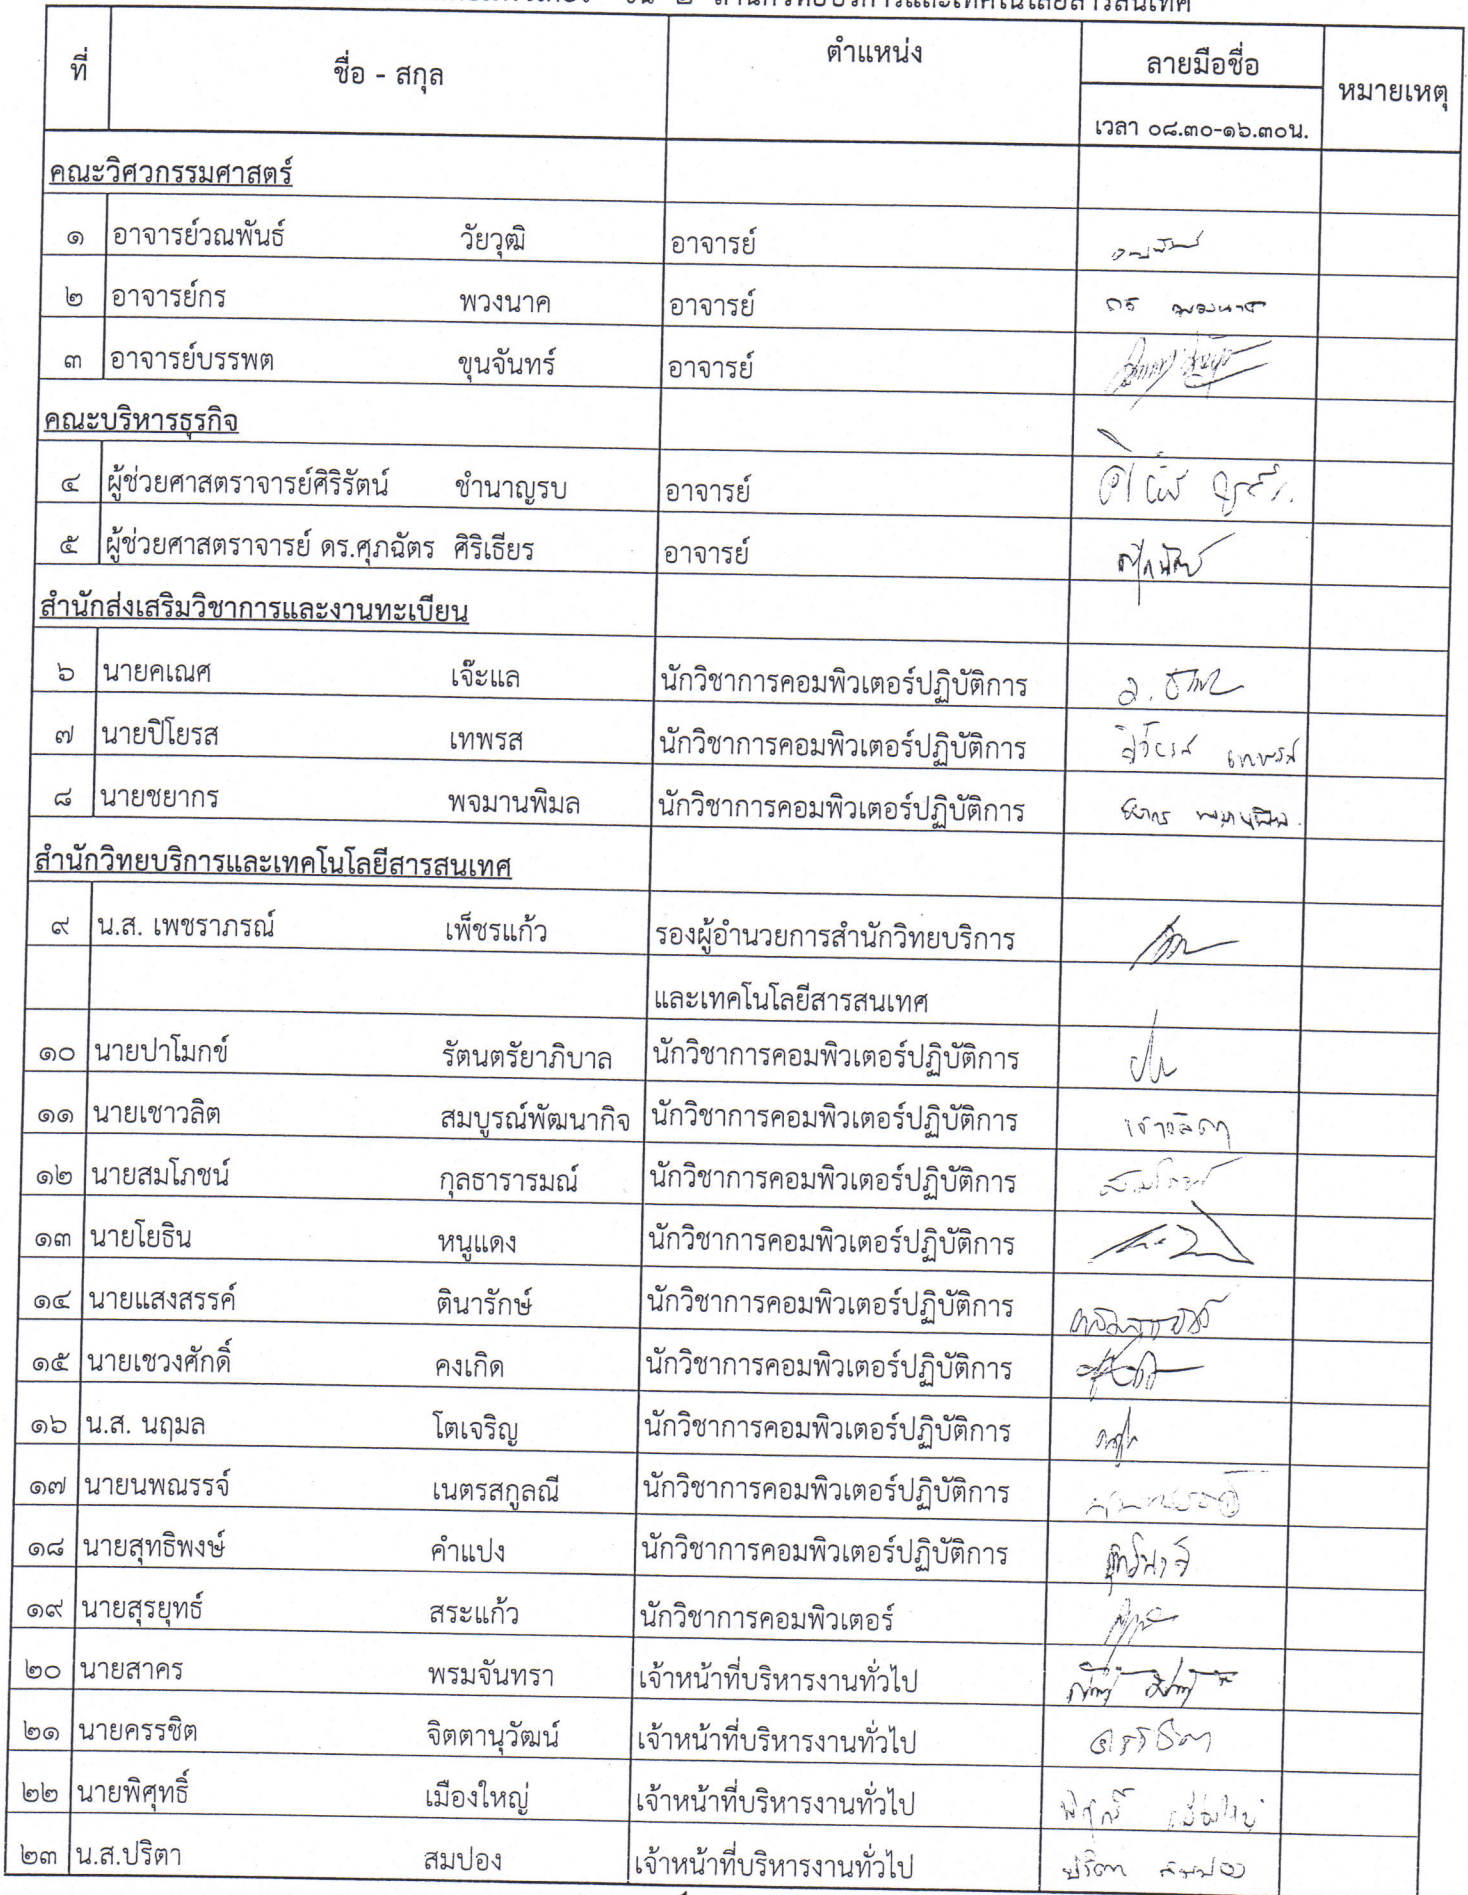 ชั้น ๒ สำนักวิทยบริการและเทคโนโลยีสารสนเทศ
ที่ ชื่อ - สกุล ตำแหน่ง ลายมือชื่อ หมายเหตุ
เวลา ๐๘.๓๐-๑๖.๓๐น.
คณะวิศวกรรมศาสตร์
๑ อาจารย์วณพันธ์ วัยวุฒิ อาจารย์
๒ อาจารย์กร พวงนาค อาจารย์ กร พวงนาค
๓ อาจารย์บรรพต ขุนจันทร์ อาจารย์
คณะบริหารธุรกิจ
๔ ผู้ช่วยศาสตราจารย์ศิริรัตน์ ชำนาญรบ อาจารย์
๕ ผู้ช่วยศาสตราจารย์ ดร.ศุภฉัตร ศิริเธียร อาจารย์
สำนักส่งเสริมวิชาการและงานทะเบียน
๖ นายคเณศ เจ๊ะแล นักวิชาการคอมพิวเตอร์ปฏิบัติการ
๗ นายปิโยรส เทพรส นักวิชาการคอมพิวเตอร์ปฏิบัติการ ปิโยรส เทพรส
๘ นายชยากร พจมานพิมล นักวิชาการคอมพิวเตอร์ปฏิบัติการ ชยากร พจมานพิมล
สำนักวิทยบริการและเทคโนโลยีสารสนเทศ
๙ น.ส. เพชราภรณ์ เพ็ชรแก้ว รองผู้อำนวยการสำนักวิทยบริการ
และเทคโนโลยีสารสนเทศ
๑๐ นายปาโมกข์ รัตนตรัยาภิบาล นักวิชาการคอมพิวเตอร์ปฏิบัติการ
๑๑ นายเชาวลิต สมบูรณ์พัฒนากิจ นักวิชาการคอมพิวเตอร์ปฏิบัติการ เชาวลิต
๑๒ นายสมโภชน์ กุลธารารมณ์ นักวิชาการคอมพิวเตอร์ปฏิบัติการ สมโภชน์
๑๓ นายโยธิน หนูแดง นักวิชาการคอมพิวเตอร์ปฏิบัติการ
๑๔ นายแสงสรรค์ ตินารักษ์ นักวิชาการคอมพิวเตอร์ปฏิบัติการ
๑๕ นายเชวงศักดิ์ คงเกิด นักวิชาการคอมพิวเตอร์ปฏิบัติการ
๑๖ น.ส. นฤมล โตเจริญ นักวิชาการคอมพิวเตอร์ปฏิบัติการ
๑๗ นายนพณรรจ์ เนตรสกูลณี นักวิชาการคอมพิวเตอร์ปฏิบัติการ
๑๘ นายสุทธิพงษ์ คำแปง นักวิชาการคอมพิวเตอร์ปฏิบัติการ
๑๙ นายสุรยุทธ์ สระแก้ว นักวิชาการคอมพิวเตอร์
๒๐ นายสาคร พรมจันทรา เจ้าหน้าที่บริหารงานทั่วไป
๒๑ นายครรชิต จิตตานุวัฒน์ เจ้าหน้าที่บริหารงานทั่วไป ครรชิต
๒๒ นายพิศุทธิ์ เมืองใหญ่ เจ้าหน้าที่บริหารงานทั่วไป พิศุทธิ์ เมืองใหญ่
๒๓ น.ส.ปริตา สมปอง เจ้าหน้าที่บริหารงานทั่วไป ปริตา สมปอง